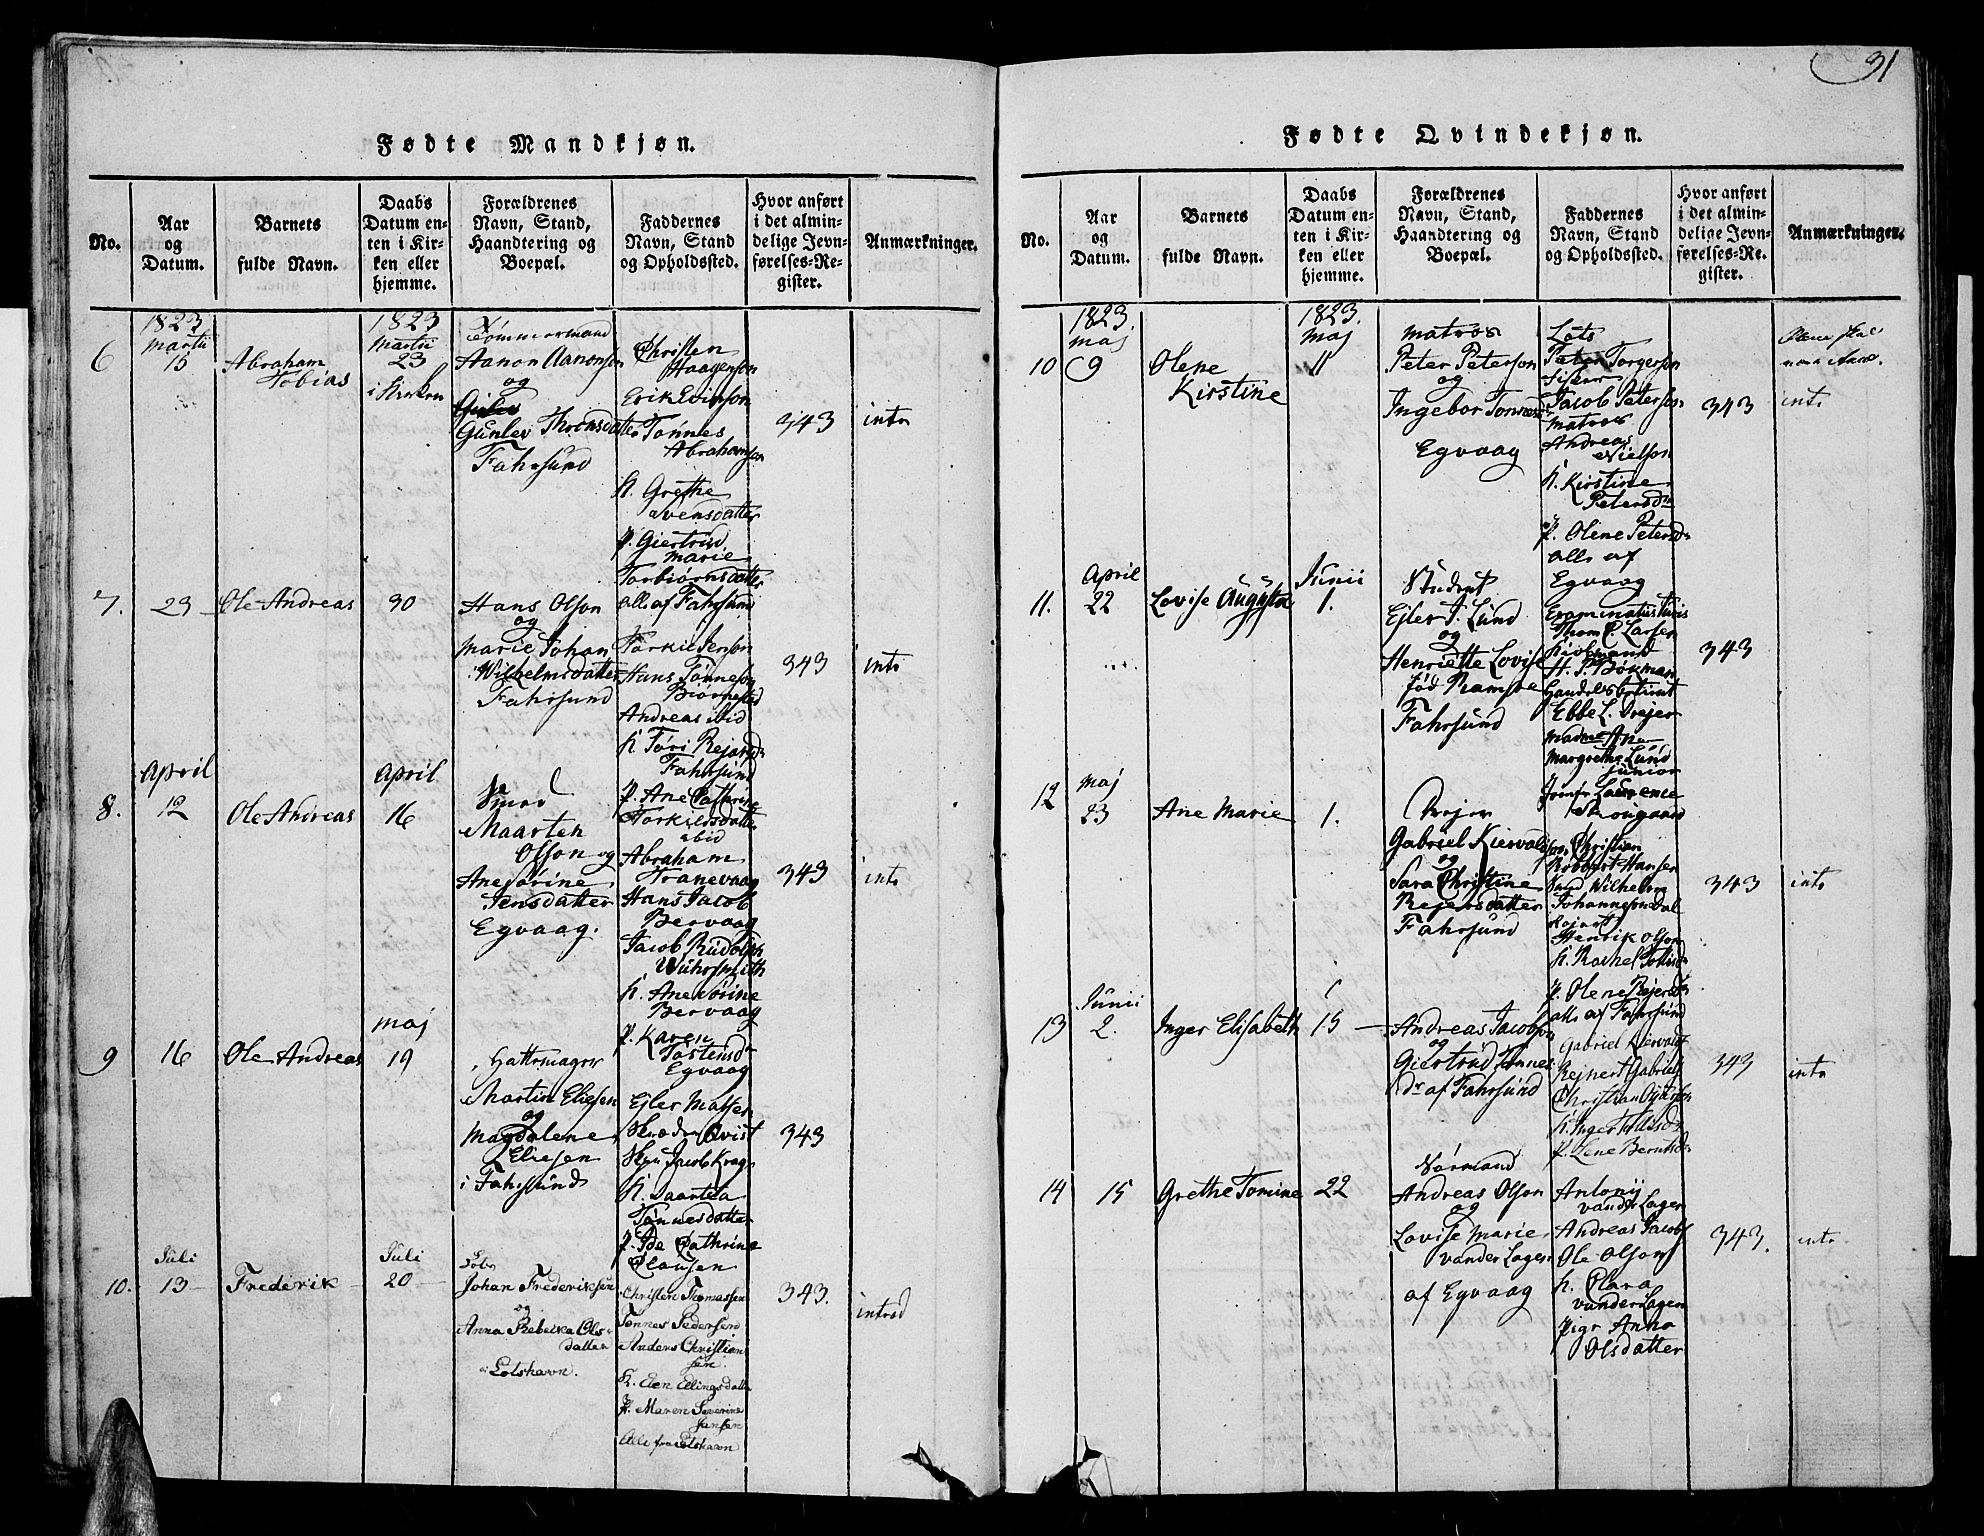 31
Fødte Mandkjøn.
No.
Aar
og
Datum.
Barnets
fulde Navn.
Daabs
Datum en-
ten i Kir-
ken eller
hjemme.
Forældrenes
Navn, Stand,
Haandtering og
Boepæl.
Faddernes
Navn, Stand
og Opholdssted.
Hvor anført
i det almin-
delige Jevn-
førelses-Re-
gister.
Anmærkninger.
6
1823
Martii
15
Abraham
Tobias
1823
Martii
23
i Kirken
Tømmermand
Aanon Aanonsøn
og
Gunlev Thronsdatter
Fahrsund
Christen
Haagenson
Erik Evinson
Tønnes
Abrahamson
K. Grethe
Svensdatter
P. Giertrud
Marie
Torbiørnsdatter
alle af Fahrsund
343
intr
7.
23
Ole Andreas
30
Hans Olson
og
Marie Johan
Wilhelmsdatter
Fahrsund
Torkil Jenson
Hans Tønneson
Biørnested
Andreas ibid
K. Tøri Rejersdr
Fahrsund
P. Ane Cathrine
Torkilsdatter
ibid
343
intr
8.
April
12
Ole Andreas
April
16
Smed
Maarten
Olson og
Ane Sørine
Jensdatter
Egvaag.
Abraham
Tranevaag
Hans Jacob
Bervaag
Jacob Rudolph
Wuhrsmith
K. Ane Sørine
Bervaag
P. Karen
Tostensdr
Egvaag
343
intr
9
16
Ole Andreas
Maj
19
Hattemager
Martin Eliesen
og
Magdalene
Eliesen
i Fahrsund
Ejler Matsen
Skræder Qvist
Jacob Krag
K. Saartea
Tønnesdatter
P. Ide Cathrine
Clausen
343
10.
Juli
13
Frederik
Juli
20
Lods
Johan Frederiksen
og
Anna Rebecka Ols-
datter
Lotshavn.
Christen Thomassen
Tønnes Pedersen
Anders Christian
sen.
K. Elen Ellingsdatter
P. Maren Severine
Jansen
Alle fra Lotshavn
343.
introd
Fødte Qvindekjøn.
No.
Aar
og
Datum.
Barnets
fulde Navn.
Daabs
Datum en-
ten i Kir-
ken eller
hjemme.
Forældrenes
Navn, Stand,
Haandtering og
Boepæl.
Faddernes
Navn, Stand
og Opholdssted.
Hvor anført
i det almin-
delige Jevn-
førelses-Re-
gister.
Anmærkninger.
10
1823.
Maj
9
Olene
Kirstine
1823.
Maj
11
Matros
Peter Peterson
og
Ingebor Tønnesdr
Egvaag
Lots
Torgerson
Jacob Peterson
Matros
Andreas
Nielson
K. Kirstine
Petersdr
P. Olene Petersdr
alle af
Egvaag
343
intr
11.
April
22
Lovise Augusta
Junii
1.
Student
Ejler J. Lund
og
Henriette Lovise
fød Ramsøe
Fahrsund
Examinatus Juris
Thom P. Larsen
Kiøbmand
H. P. Bøkman
Handelsbetient
Ebbe L. Drejer
Madme Ane
Margrethe Lund
Junior
Jomfr Laurence
343
12
Maj
23
Ane Marie
1.
Drejer
Gabriel Kiervaldson
og
Sara Christine
Rejersdatter
Fahrsund
Christian
Robbert Hansen
Smed Wilhelm
Johanneson Dal
Henrik Olson
K. Rachel Tollisdr
P. Olene Rejersdr
alle af Fahrsund
343
intr
13
Junii
2.
Inger Elisabeth
15
Andreas Jacobson
og
Giertrud Tønnes
dr af Fahrsund
Gabriel Kiervaldson
Rejnert Gabrielson
Christian
K. Inger
P. Lene Berntsdr
343
intr
14
15
Grethe Tomine
22
Normand
Andreas Olson
og
Lovise Marie
vander Lagen
af Egvaag
Antony
vander Lagen
Andreas Jacobs
Ole Olson
K. Clara
vander Lagen
Pige Anna
Olsdatter
343.
intr